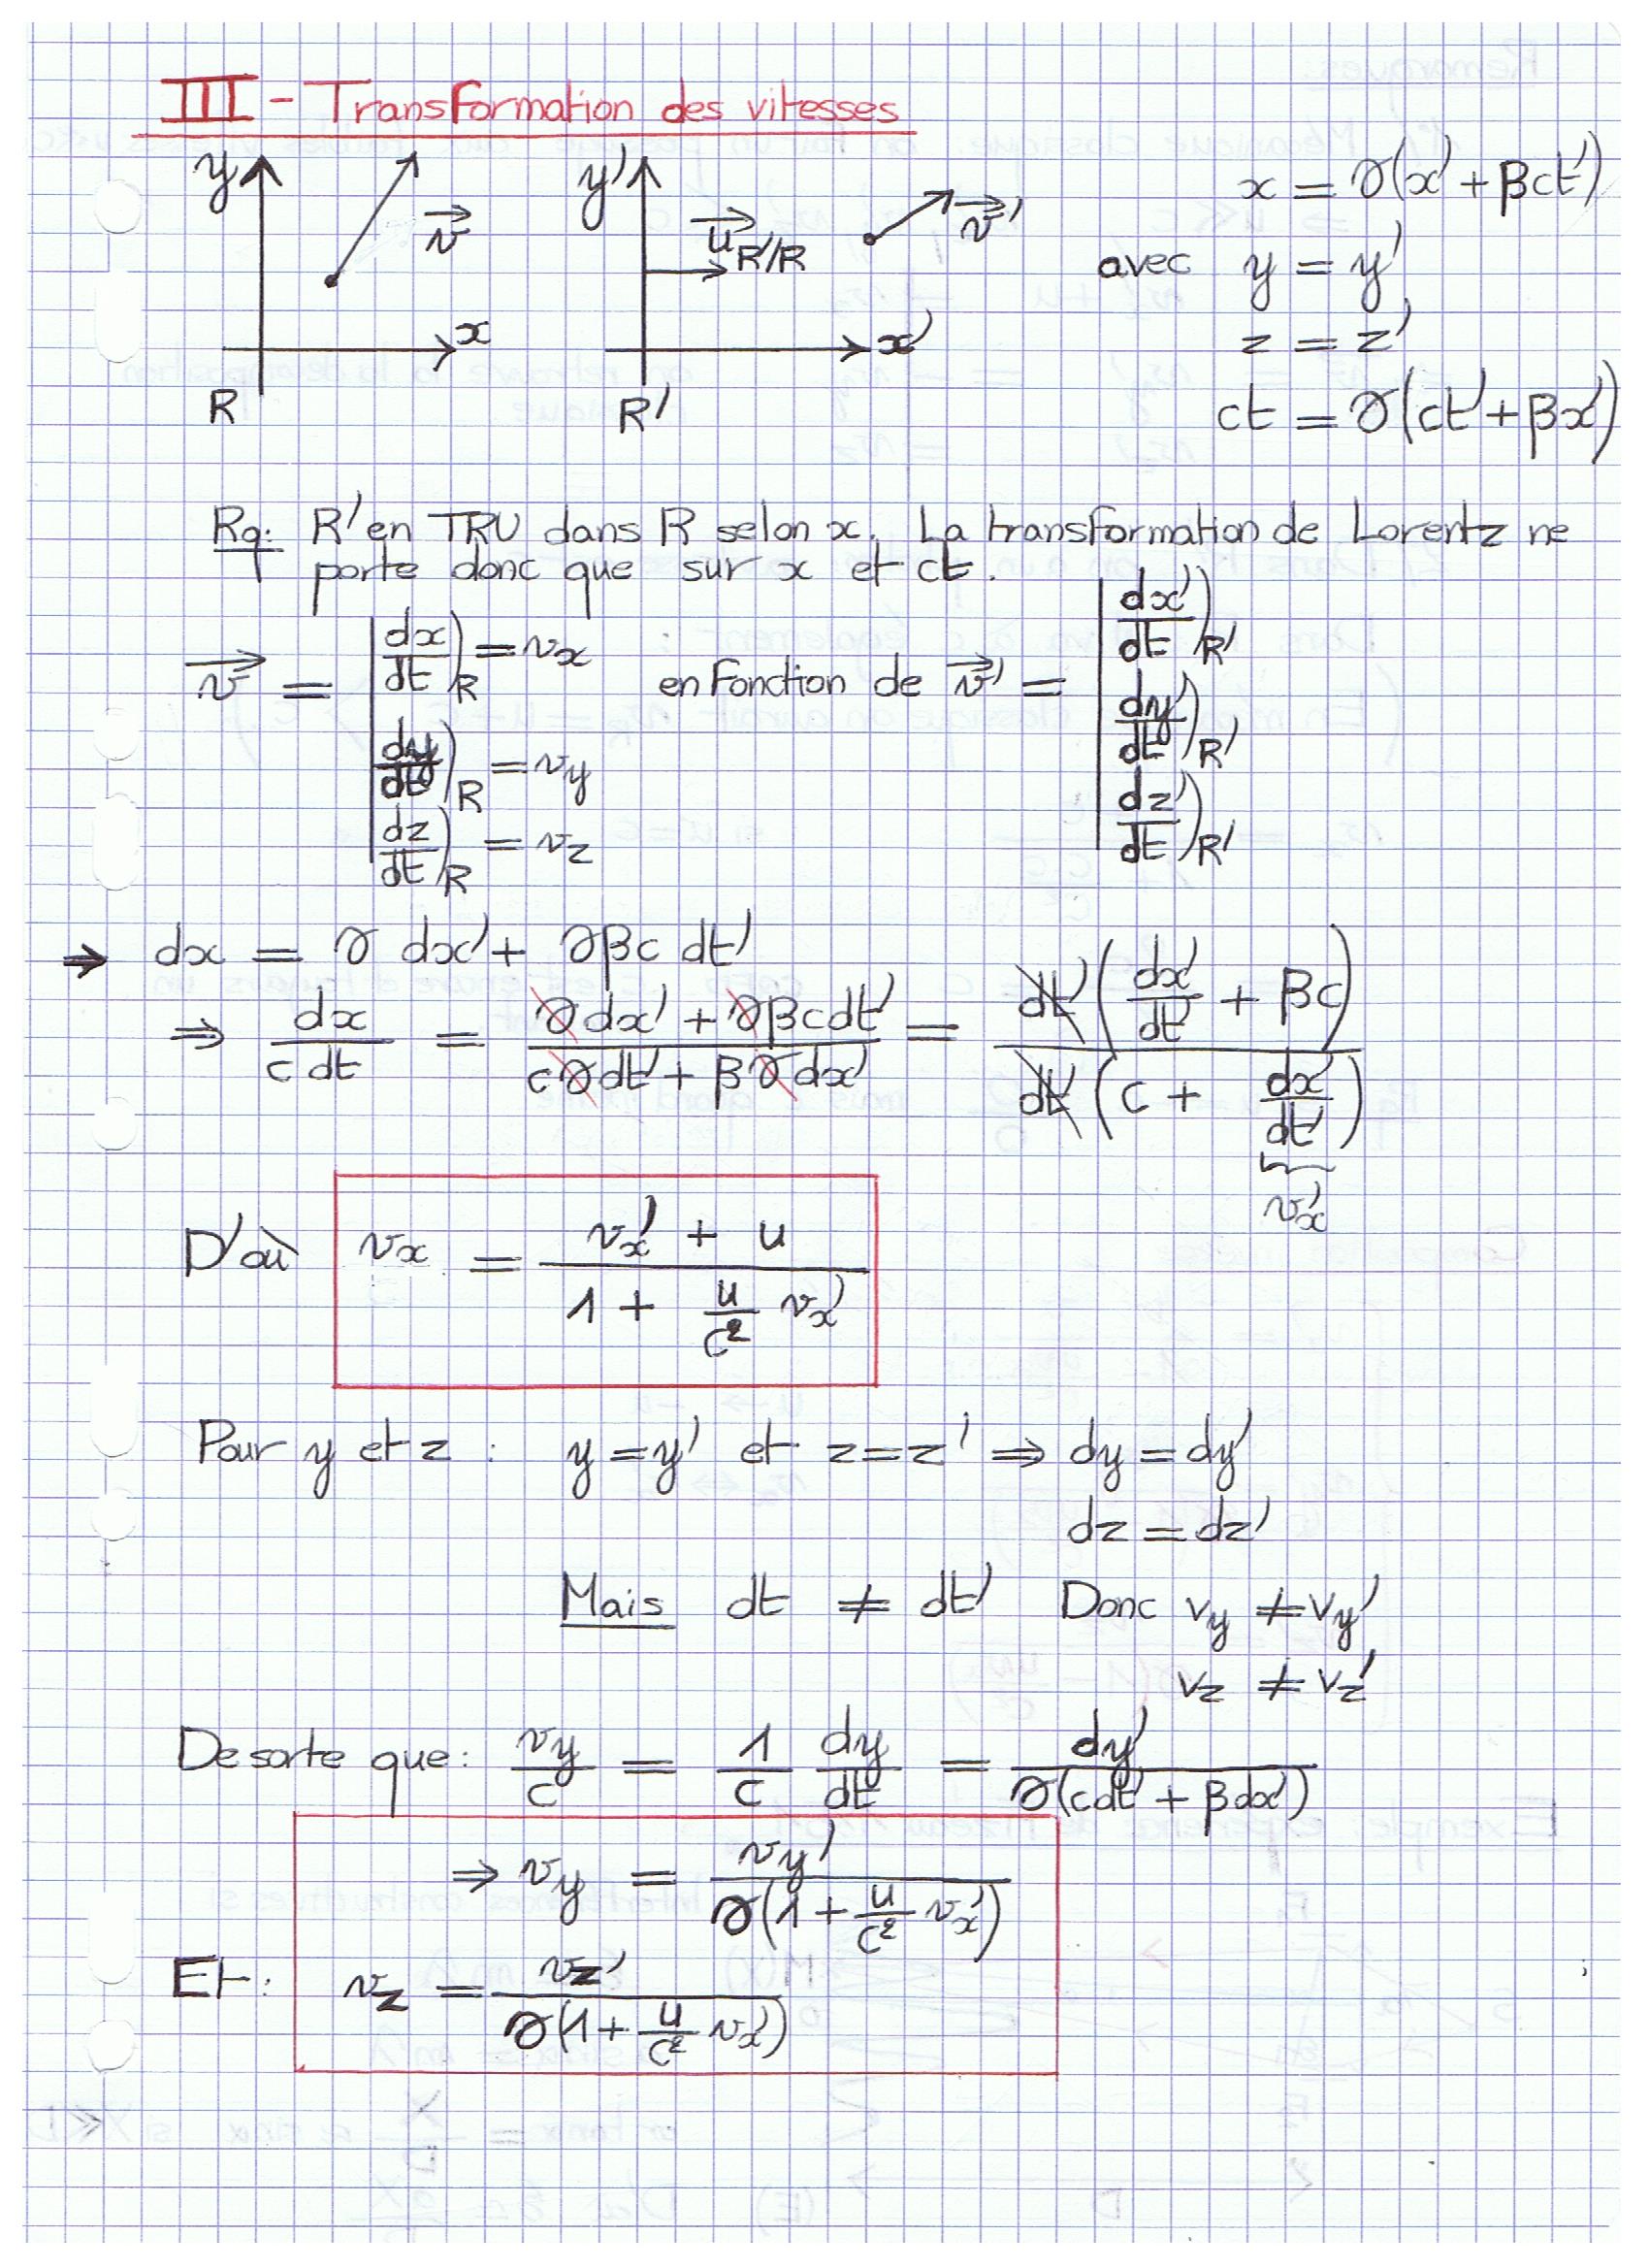 III - Transformation des vitesses
y x R v⃗
y' x' R' u⃗ R'/R v⃗'
x = γ(x' + βct')
avec y = y'
z = z'
ct = γ(ct' + βx')
Rq: R' en TRU dans R selon x. La transformation de Lorentz ne
porte donc que sur x et ct.
v⃗ = | dx/dt)R = vx en fonction de v⃗' = | dx'/dt')R'
| dy/dt)R = vy | dy'/dt')R'
| dz/dt)R = vz | dz'/dt')R'
⇒ dx = γ dx' + γβc dt'
⇒ dx/(c dt) = (γdx' + γβcdt')/(cγdt' + βγdx') = dt'(dx'/dt' + βc)/dt'(c + dx'/dt')
vx'
D'où vx = (vx' + u)/(1 + u/c² vx')
Pour y et z : y = y' et z = z' ⇒ dy = dy'
dz = dz'
Mais dt ≠ dt' Donc vy ≠ vy'
vz ≠ vz'
De sorte que: vy/c = 1/c dy/dt = dy'/γ(cdt' + βdx')
⇒ vy = vy'/γ(1 + u/c² vx')
Et: vz = vz'/γ(1 + u/c² vx')